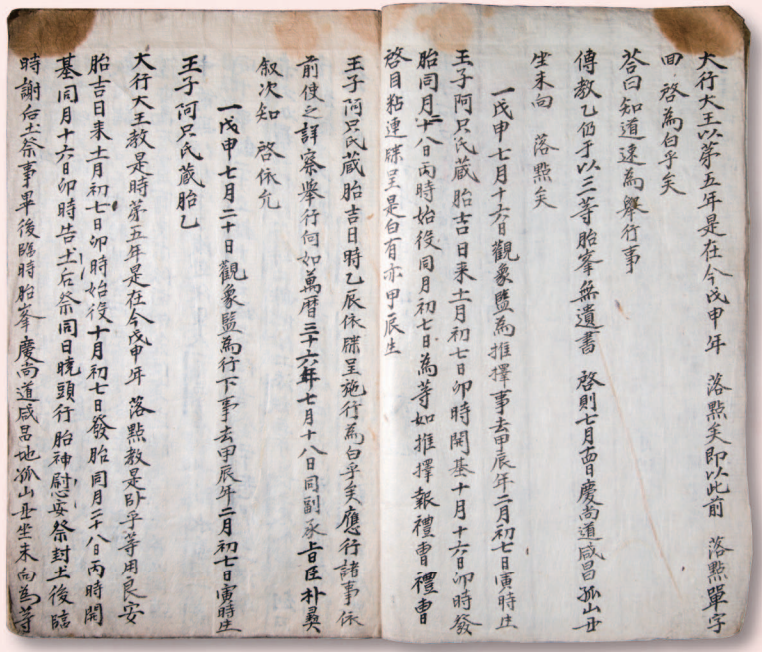 大行大王以第五年是在今戊申年　落點矣即以此前　落點單字
回　啓為白乎矣
答曰知道速為舉行事
傳教乙仍于以三等胎峯無遺書　啓則七月日慶尚道咸昌孤山丑
坐未向　落點矣
一戊申七月十六日觀象監為推擇事去甲辰年二月初七日寅時生
王子阿只氏藏胎吉日來十一月初七日卯時開基十月十六日卯時發
胎同月二十八日丙時始役同月初七日為等如推擇報禮曹禮曹
啓目粘連牒呈是白有亦甲辰生
王子阿只氏藏胎吉日時乙良依牒呈施行為白乎矣應行諸事依
前使之詳察舉行何如萬曆三十六年七月十八日同副承旨臣朴彝
叙次知　啓依允
一戊申七月二十日觀象監為行下事去甲辰年二月初七日寅時生
王子阿只氏藏胎乙
大行大王教是時第五年是在今戊申年　落點教是臥乎等用良安
胎吉日來十一月初七日卯時始役十月初七日發胎同月二十八日丙時開
基同月十六日卯時告土后祭同日曉頭行胎神慰安祭封土後臨
時謝后土祭事畢後臨時胎峯慶尚道咸昌地孤山丑坐未向為等